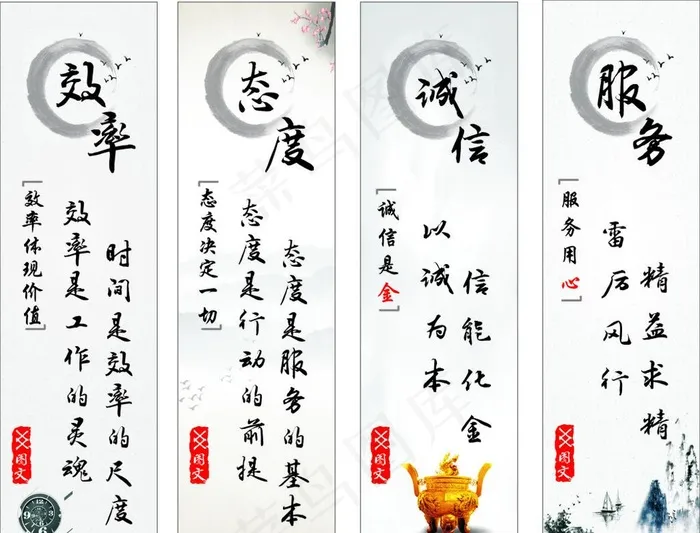 效率
效率体现价值
效率是工作的灵魂
时间是效率的尺度
XX图文
态度
态度决定一切
态度是行动的前提
态度是服务的基本
XX图文
诚信
诚信是金
以诚为本
信能化金
XX图文
服务
服务用心
雷厉风行
精益求精
XX图文